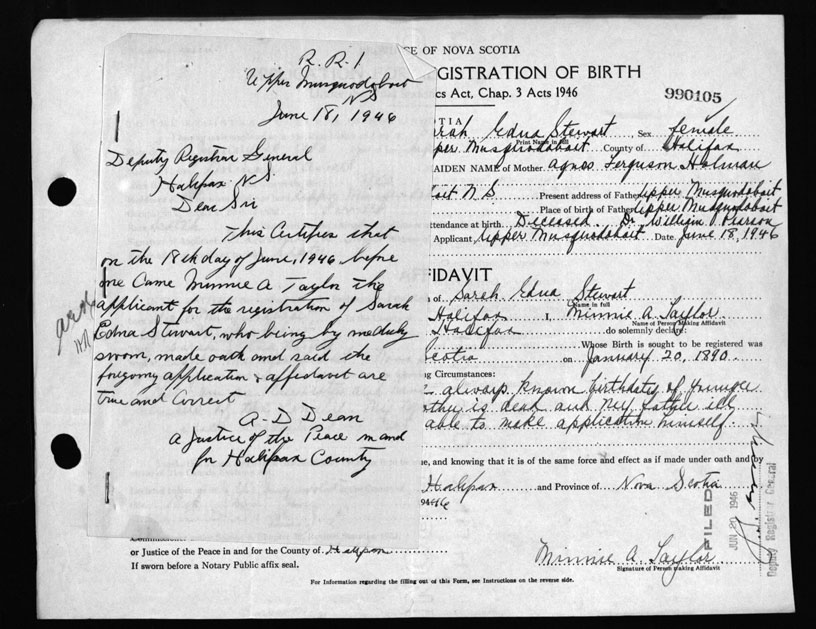 R. R. 1
Upper Musquodoboit
N S
June 18, 1946
Deputy Registrar General
Halifax N. S.
Dear Sir
This Certifies that
on the 18th day of June, 1946 before
me Came Minnie A Taylor the
applicant for the registration of Sarah
Edna Stewart, who being by me duly
sworn, made oath and said the
foregoing application & affidavit are
true and Correct
A. D Dean
A Justice of the Peace in and
for Halifax County
CE OF NOVA SCOTIA
GISTRATION OF BIRTH
cs Act, Chap. 3 Acts 1946
990105
OTIA
rah Edna Stewart Sex female
Print Name in full
per Musquodoboit County of Halifax
AIDEN NAME of Mother Agnes Ferguson Holman
oit N S. Present address of Father Upper Musquodoboit
Place of birth of Father Upper Musquodoboit
ttendance at birth Deceased Dr William Pierson
Applicant Upper Musquodoboit Date June 18, 1946
FIDAVIT
of Sarah Edna Stewart
Name in full
Halifax I, Minnie A. Taylor
Name of Person Making Affidavit
Halifax do solemnly declare:
Whose Birth is sought to be registered was
Scotia on January 20, 1890.
ng Circumstances:
always known birthdate of younger
other is dead and my father ill
able to make application himself.
ue, and knowing that it is of the same force and effect as if made under oath and by
Halifax and Province of Nova Scotia
or Justice of the Peace in and for the County of Halifax
If sworn before a Notary Public affix seal.
Minnie A. Taylor
Signature of Person Making Affidavit
For Information regarding the filling out of this Form, see Instructions on the reverse side.
FILED
JUN 20 1946
Deputy Registrar General